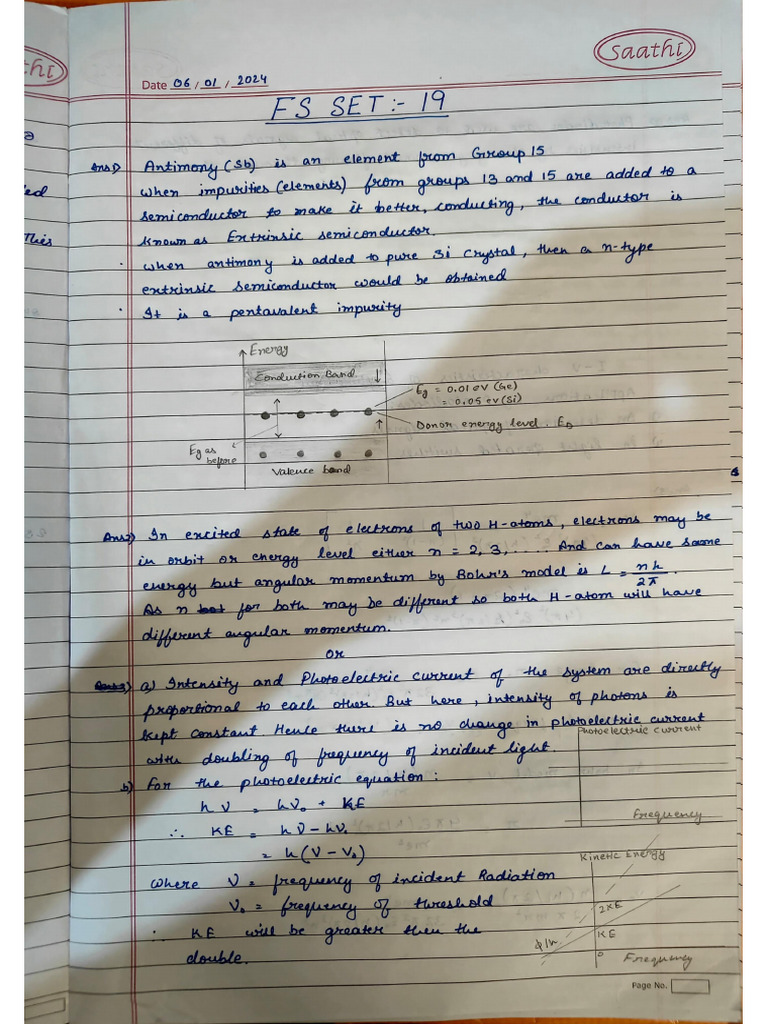 saathi
Date 06 / 01 / 2024
FS SET:- 19
Ans1) Antimony (Sb) is an element from Group 15
when impurities (elements) from groups 13 and 15 are added to a
semiconductor to make it better, conducting, the conductor is
known as Extrinsic semiconductor.
· when antimony is added to pure Si crystal, then a n-type
extrinsic semiconductor would be obtained
· It is a pentavalent impurity
Energy
Conduction Band
Eg = 0.01 eV (Ge)
= 0.05 eV (Si)
Donor energy level. ED
Eg as
before
Valence band
Ans2) In excited state of electrons of two H-atoms, electrons may be
in orbit or energy level either n = 2, 3, .... And can have same
energy but angular momentum by Bohr's model is L = nh/2π.
As n for both may be different so both H-atom will have
different angular momentum.
or
a) Intensity and Photoelectric current of the system are directly
proportional to each other. But here, intensity of photons is
kept constant Hence there is no change in photoelectric current
with doubling of frequency of incident light.
Photoelectric current
Frequency
b) For the photoelectric equation:
hν = hν₀ + KE
∴ KE = hν - hν₀
= h(ν - ν₀)
where ν = frequency of incident Radiation
ν₀ = frequency of threshold
∴ KE will be greater then the
double.
Kinetic Energy
2KE
KE
0
ϕ/h
Frequency
Page No.